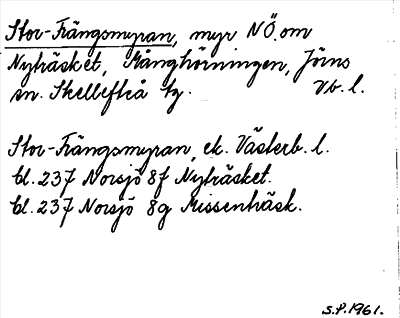 Stor-Frängsmyran, myr NÖ. om
Nyträsket, Mångbörningen, Jörns
sn. Skellefteå tg. Vb. l.
Stor-Frängsmyran, ek. Västerb. l.
bl. 237 Norsjö 8f Nyträsket.
bl. 237 Norsjö 8g Missenträsk.
S.P. 1961.